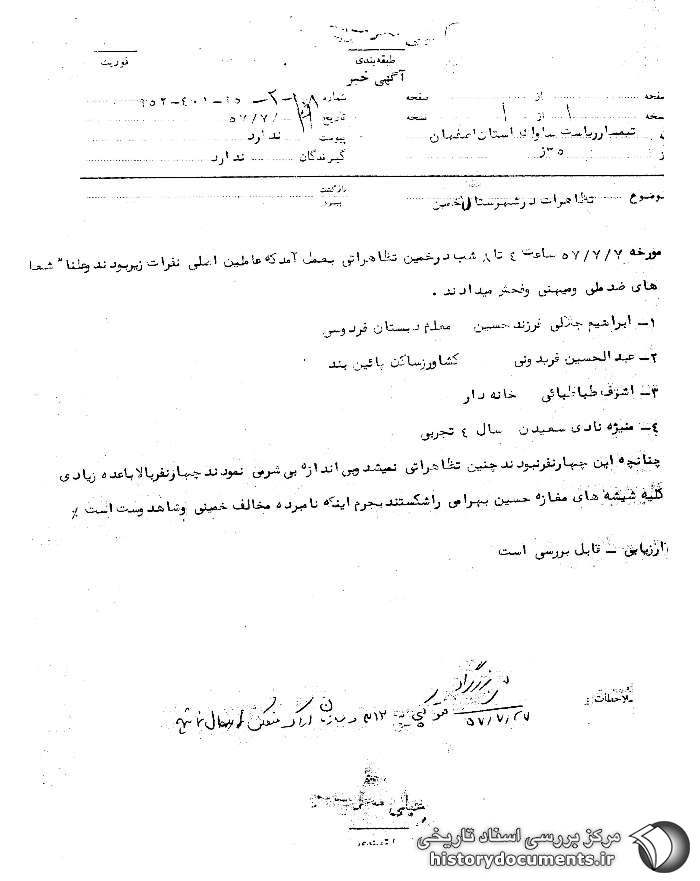 طبقه‌بندی
فوریت
آگهی خبر
صفحه از صفحه شماره
نسخه ۱ از ۱ نسخه تاریخ ۵۷/۷/
تیمسار ریاست ساواک استان اصفهان پیوست ندارد
۳۵ز گیرندگان ندارد
موضوع تظاهرات در شهرستان خمین
بازگشت
پیرو
مورخه ۵۷/۷/۷ ساعت ٤ تا ۸ شب درخمین تظاهراتی بعمل آمدکه عاملین اصلی نفرات زیربودند وعلنا" شعا
های ضد ملی ومیهنی وفحش میدادند .
۱- ابراهیم جلالی فرزندحسین معلم دبستان فردوسی
۲- عبدالحسین فریدونی کشاورزساکن پائین بند
۳- اشرف طباطبائی خانه دار
٤- منیژه نادی سعیدن سال ٤ تجربی
چنانچه این چهارنفرنبودند چنین تظاهراتی نمیشد وبی اندازه بی شرمی نمودند چهارنفربالاباعده زیادی
کلیه شیشه های مغازه حسین بهرامی راشکستندبجرم اینکه نامبرده مخالف خمینی وشاهدوست است ٪
ارزیابی - قابل بررسی است
ملاحظات :
۵۷/۷/۲۷
طبقه‌بندی
مرکز بررسی اسناد تاریخی
historydocuments.ir